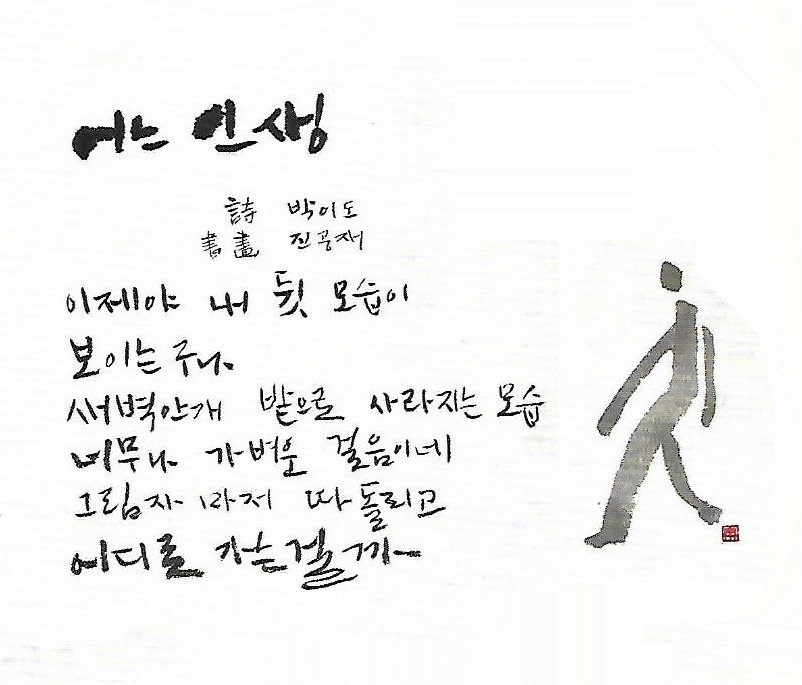 어느 인생
詩 박이도
書畵 진공재
이제야 내 뒷 모습이
보이는구나.
새벽안개 밭으로 사라지는 모습
너무나 가벼운 걸음이네
그림자 마저 따돌리고
어디로 가는걸까